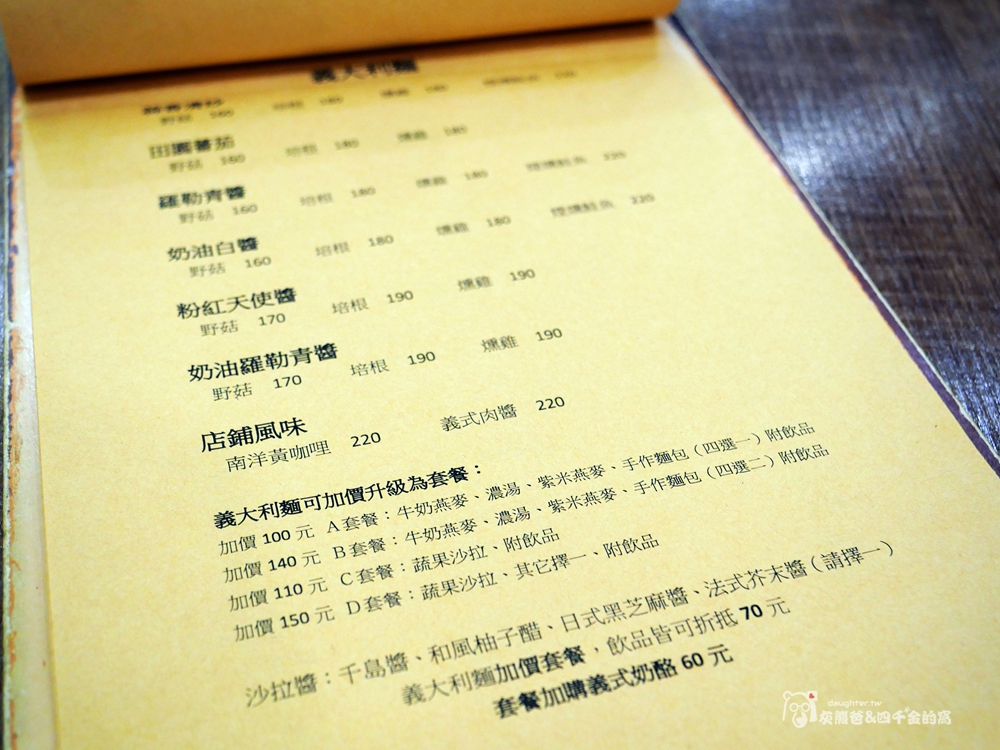 義大利麵
蒜香清炒
野菇 160 培根 180 燻雞 180
田園蕃茄
野菇 160 培根 180 燻雞 180
羅勒青醬
野菇 160 培根 180 燻雞 180 煙燻鮭魚 220
奶油白醬
野菇 160 培根 180 燻雞 180 煙燻鮭魚 220
粉紅天使醬
野菇 170 培根 190 燻雞 190
奶油羅勒青醬
野菇 170 培根 190 燻雞 190
店鋪風味
南洋黃咖哩 220 義式肉醬 220
義大利麵可加價升級為套餐：
加價 100 元 A 套餐：牛奶燕麥、濃湯、紫米燕麥、手作麵包（四選一）附飲品
加價 140 元 B 套餐：牛奶燕麥、濃湯、紫米燕麥、手作麵包（四選二）附飲品
加價 110 元 C 套餐：蔬果沙拉、附飲品
加價 150 元 D 套餐：蔬果沙拉、其它擇一、附飲品
沙拉醬：千島醬、和風柚子醋、日式黑芝麻醬、法式芥末醬（請擇一）
義大利麵加價套餐，飲品皆可折抵 70 元
套餐加購義式奶酪 60 元
daughter.tw
灰熊爸&四千金的窩